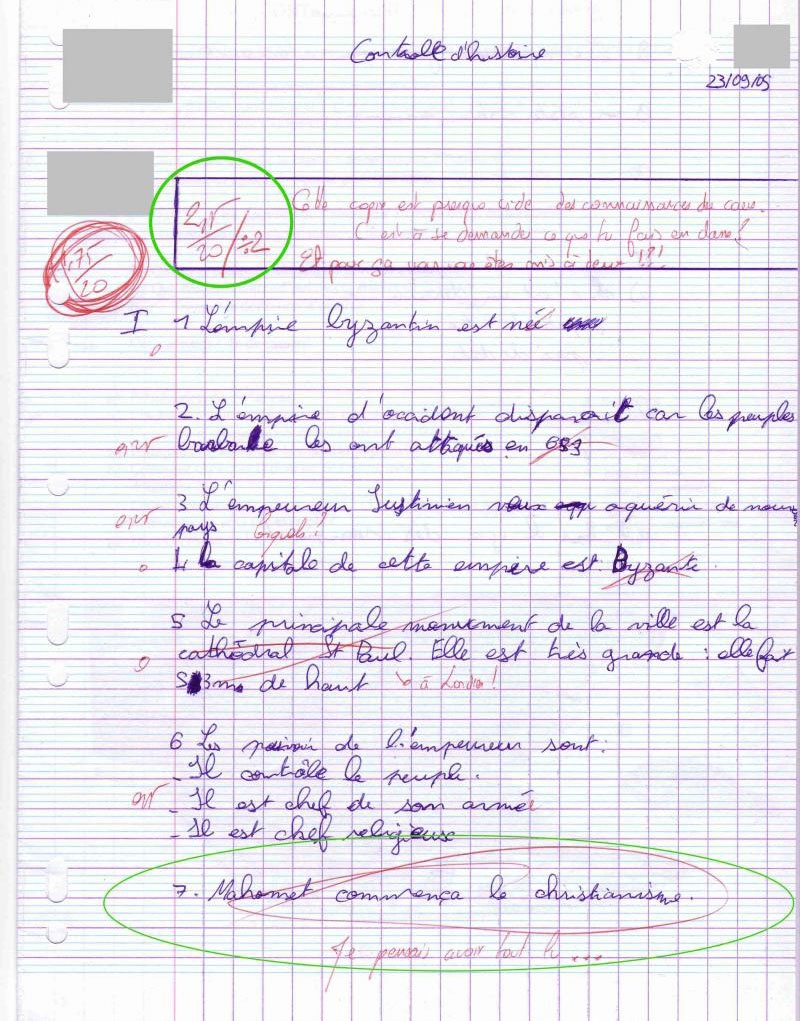 Controlle d'histoire
23/09/05
2,5/20 /÷2
Cette copie est presque vide des connaissances du cours.
C'est à se demander ce que tu fais en classe!
Et pour ça vous vous êtes mis à deux !?!
1,75/20
I 1 L'émpire byzantin est née
0
2. L'émpire d'occident disparait car les peuples
0,25 barbare les ont attiqués en 683
3 L'empeureur Justinien veux aquérir de nouv
0,25 pays lesquels?
0 4 la capitale de cette empire est Byzante.
5 Le principale monument de la ville est la
cathédral St Paul. Elle est très grande : elle fait
0 53m de haut à Londres!
6 Les pouvoir de l'empeureur sont:
- Il contrôle le peuple.
0,5 - Il est chef de son armée
- Il est chef religieuse
7. Mahomet commença le christianisme.
Je pensais avoir tout lu ...